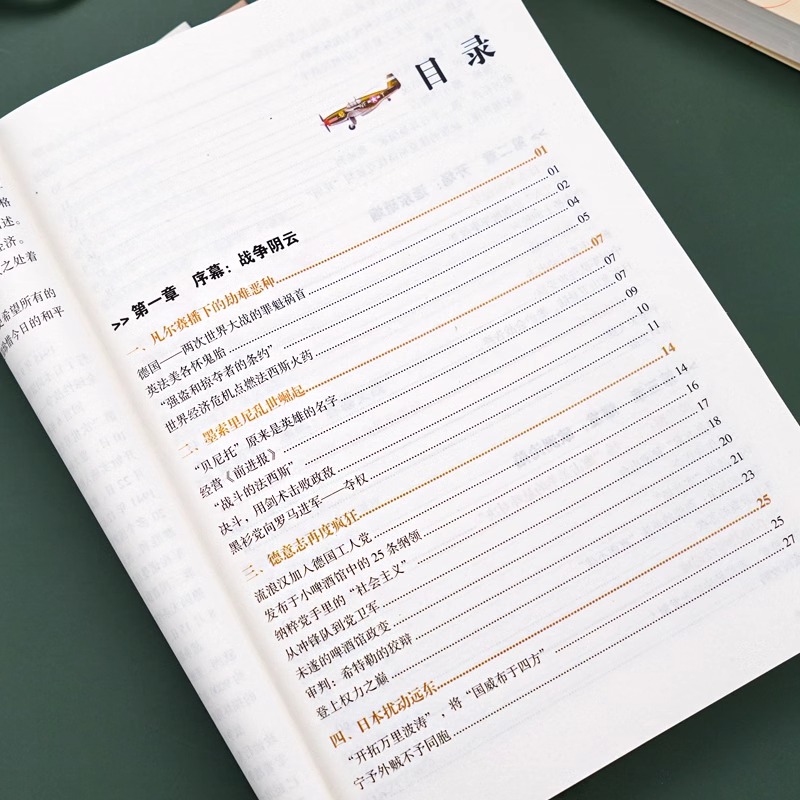 格
述。
经济。
之处着
希望所有的
惜今日的和平
目录
>> 第一章 序幕：战争阴云
一、凡尔赛播下的劫难恶种......01
德国——两次世界大战的罪魁祸首......01
英法美各怀鬼胎......02
“强盗和掠夺者的条约”......04
世界经济危机点燃法西斯火药......05
二、墨索里尼乱世崛起......07
“贝尼托”原来是英雄的名字......07
经营《前进报》......07
“战斗的法西斯”......09
决斗，用剑术击败政敌......10
黑衫党向罗马进军——夺权......11
三、德意志再度疯狂......14
流浪汉加入德国工人党......14
发布于小啤酒馆中的 25 条纲领......16
纳粹党手里的“社会主义”......17
从冲锋队到党卫军......18
未遂的啤酒馆政变......20
审判：希特勒的狡辩......21
登上权力之巅......23
四、日本扰动远东......25
“开拓万里波涛”，将“国威布于四方”......25
宁予外贼不予同胞......27